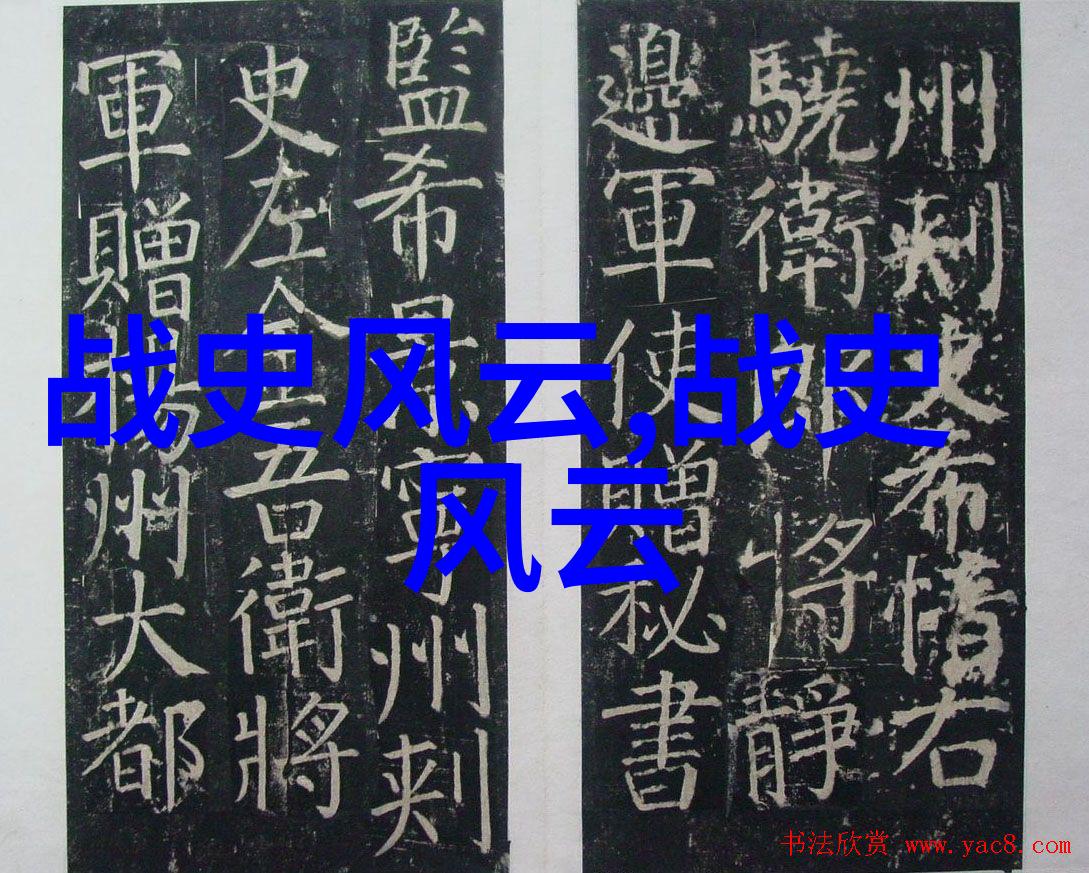 州刺史希愭右
驍衛郎將靜
邊軍使贈秘書
監希景寧州刺
史左金吾衛將
軍贈揚州大都
战史风云,战史
风云
书法欣赏 www.yac8.com